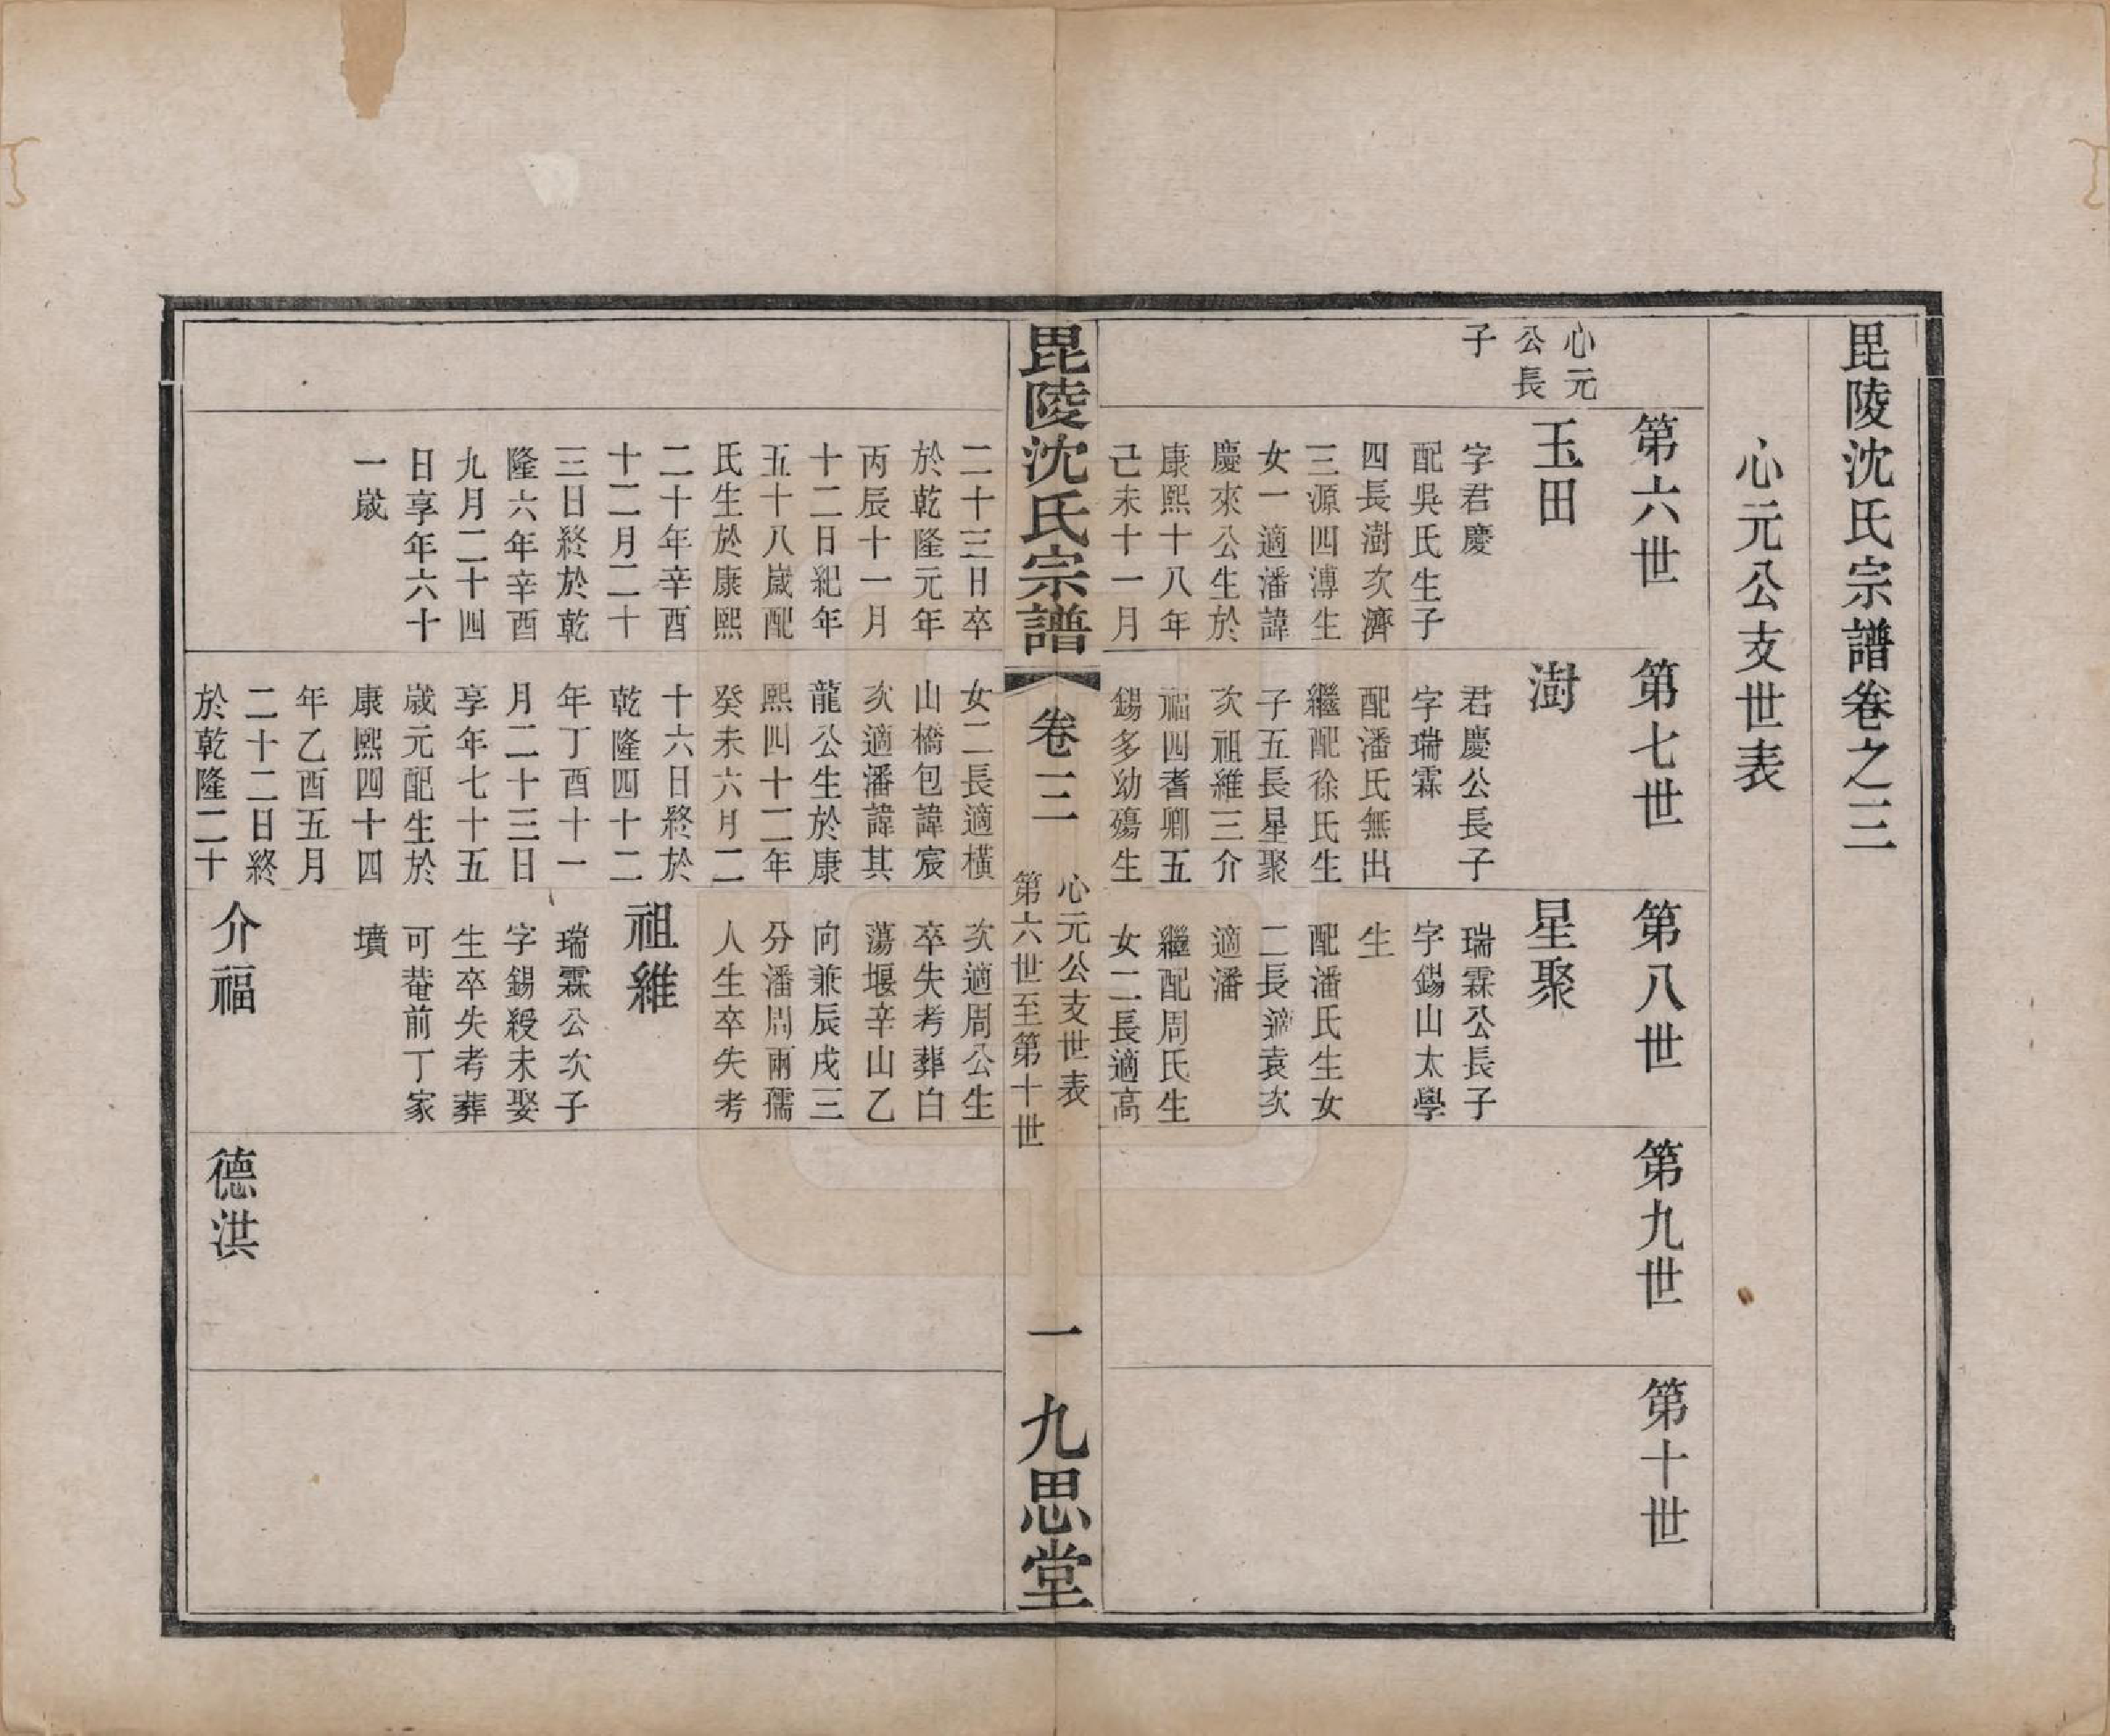 毘陵沈氏宗譜卷之三
心元公支世表
第六世
第七世
第八世
第九世
第十世
心元
公長
子
玉田
字君慶
配吳氏生子
四長澍次濟
三源四溥生
女一適潘諱
慶來公生於
康熙十八年
己未十一月
二十三日卒
於乾隆元年
丙辰十一月
十二日紀年
五十八歲配
氏生於康熙
二十年辛酉
十二月二十
三日終於乾
隆六年辛酉
九月二十四
日享年六十
一歲
澍
君慶公長子
字瑞霖
配潘氏無出
繼配徐氏生
子五長星聚
次祖維三介
福四耆卿五
錫多幼殤生
女二長適橫
山橋包諱宸
次適潘諱其
龍公生於康
熙四十二年
癸未六月二
十六日終於
乾隆四十二
年丁酉十一
月二十三日
享年七十五
歲元配生於
康熙四十四
年乙酉五月
二十二日終
於乾隆二十
星聚
瑞霖公長子
字錫山太學
生
配潘氏生女
二長適袁次
適潘
繼配周氏生
女二長適高
次適周公生
卒失考葬白
蕩堰辛山乙
向兼辰戌三
分潘周兩孺
人生卒失考
祖維
瑞霖公次子
字錫綬未娶
生卒失考葬
可菴前丁家
墳
介福
德洪
毘陵沈氏宗譜
卷三
心元公支世表
第六世至第十世
一
九思堂